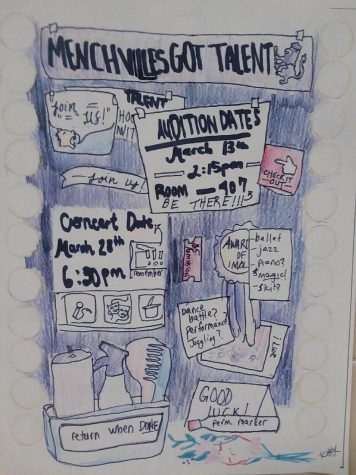 MENCHVILLES GOT TALENT
"JOIN
US!"
TALENT
AUDITION DATES
March 13th
2:15pm
ROOM — 407
BE THERE!!!
CHECK IT
OUT
Join us!
Concert Date
March 28th
6:30pm
remember
AWARD
OF
- ballet
- jazz
- piano?
- magic?
- skit?
Dance
battle?
Performance?
Juggling?
GOOD
LUCK!
Perm marker
return when DONE